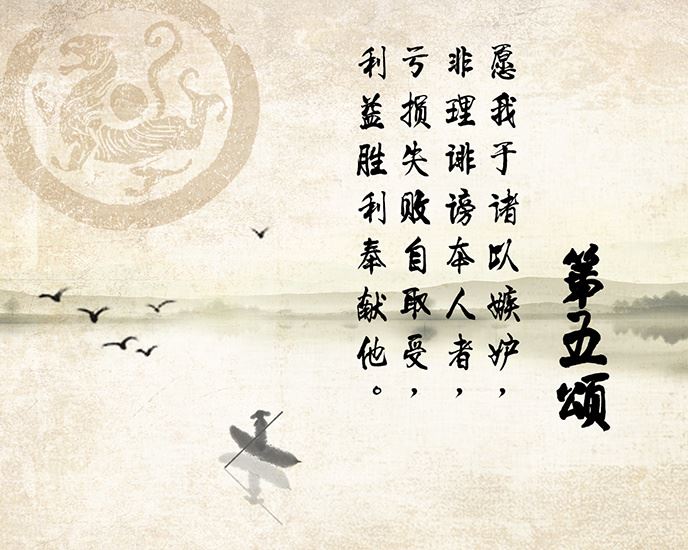 第五颂
愿我于诸以嫉妒，
非理诽谤本人者，
亏损失败自取受，
利益胜利奉献他。